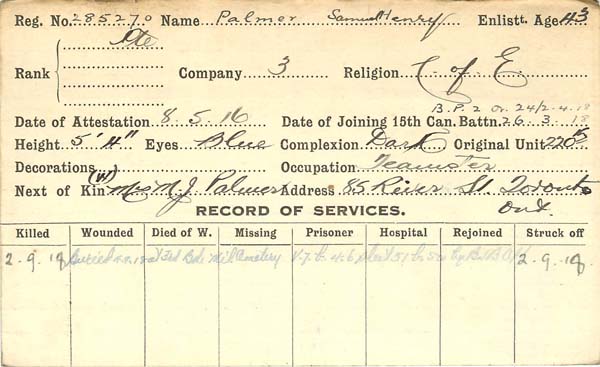 Reg. No. 285270 Name Palmer Samuel Henry Enlistt. Age 43
Pte
Rank Company 3 Religion C of E
B.P. 2 Or. 24/2-4-18
Date of Attestation 8.5.16 Date of Joining 15th Can. Battn. 26.3.18
Height 5' 4" Eyes Blue Complexion Dark Original Unit 220th
Decorations Occupation Teamster
Next of Kin (W) Mrs M. J. Palmer Address 85 River St. Toronto
Ont.
RECORD OF SERVICES.
Killed Wounded Died of W. Missing Prisoner Hospital Rejoined Struck off
2.9.18 Buried 3rd Bde Mil Cemetery 2.9.18